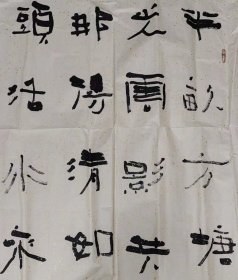 半畝方塘
光雲影共
那得清如
頭活水來